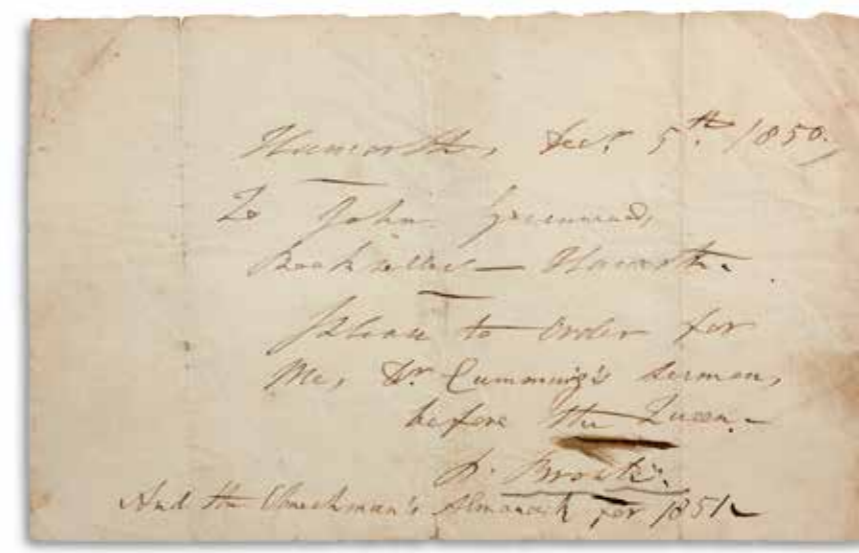 Haworth, Decr. 5th. 1850.,
To John Greenwood,
Bookseller — Haworth.
Please to order for
Me, Dr. Cumming's Sermon,
before the Queen. —
P. Brontë.
And the Churchman's Almanack for 1851 —